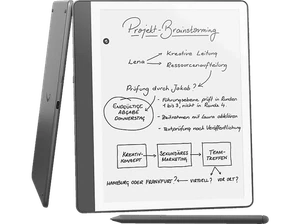 Projekt-Brainstorming
Lena
Kreative Leitung
Ressourcenaufteilung
Prüfung durch Jakob?
ENDGÜLTIGE
ABGABE
DONNERSTAG
- Führungsebene prüft in Runden
1 bis 3, nicht in Runde 4
- Zeitrahmen mit Laura abklären
- Textprüfung nach Veröffentlichung
KREATIV-
KONZEPT
SEKUNDÄRES
MARKETING
TEAM-
TREFFEN
HAMBURG ODER FRANKFURT? VIRTUELL? VOR ORT?